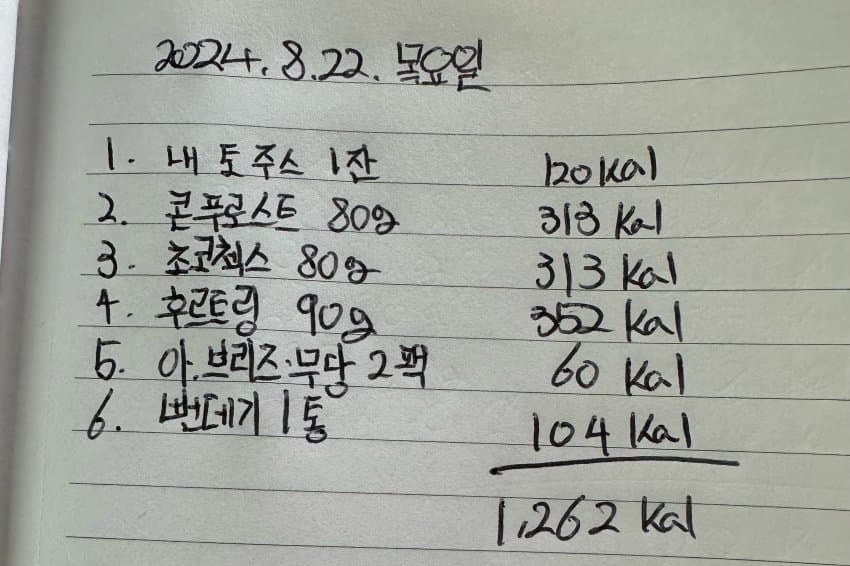 2024. 8. 22. 목요일
1. 내 토 주스 1잔 120 Kal
2. 콘푸로스트 80g 313 Kal
3. 초코첵스 80g 313 Kal
4. 후르트링 90g 352 Kal
5. 아.브리즈·무당 2팩 60 Kal
6. 번데기 1통 104 Kal
1,262 Kal